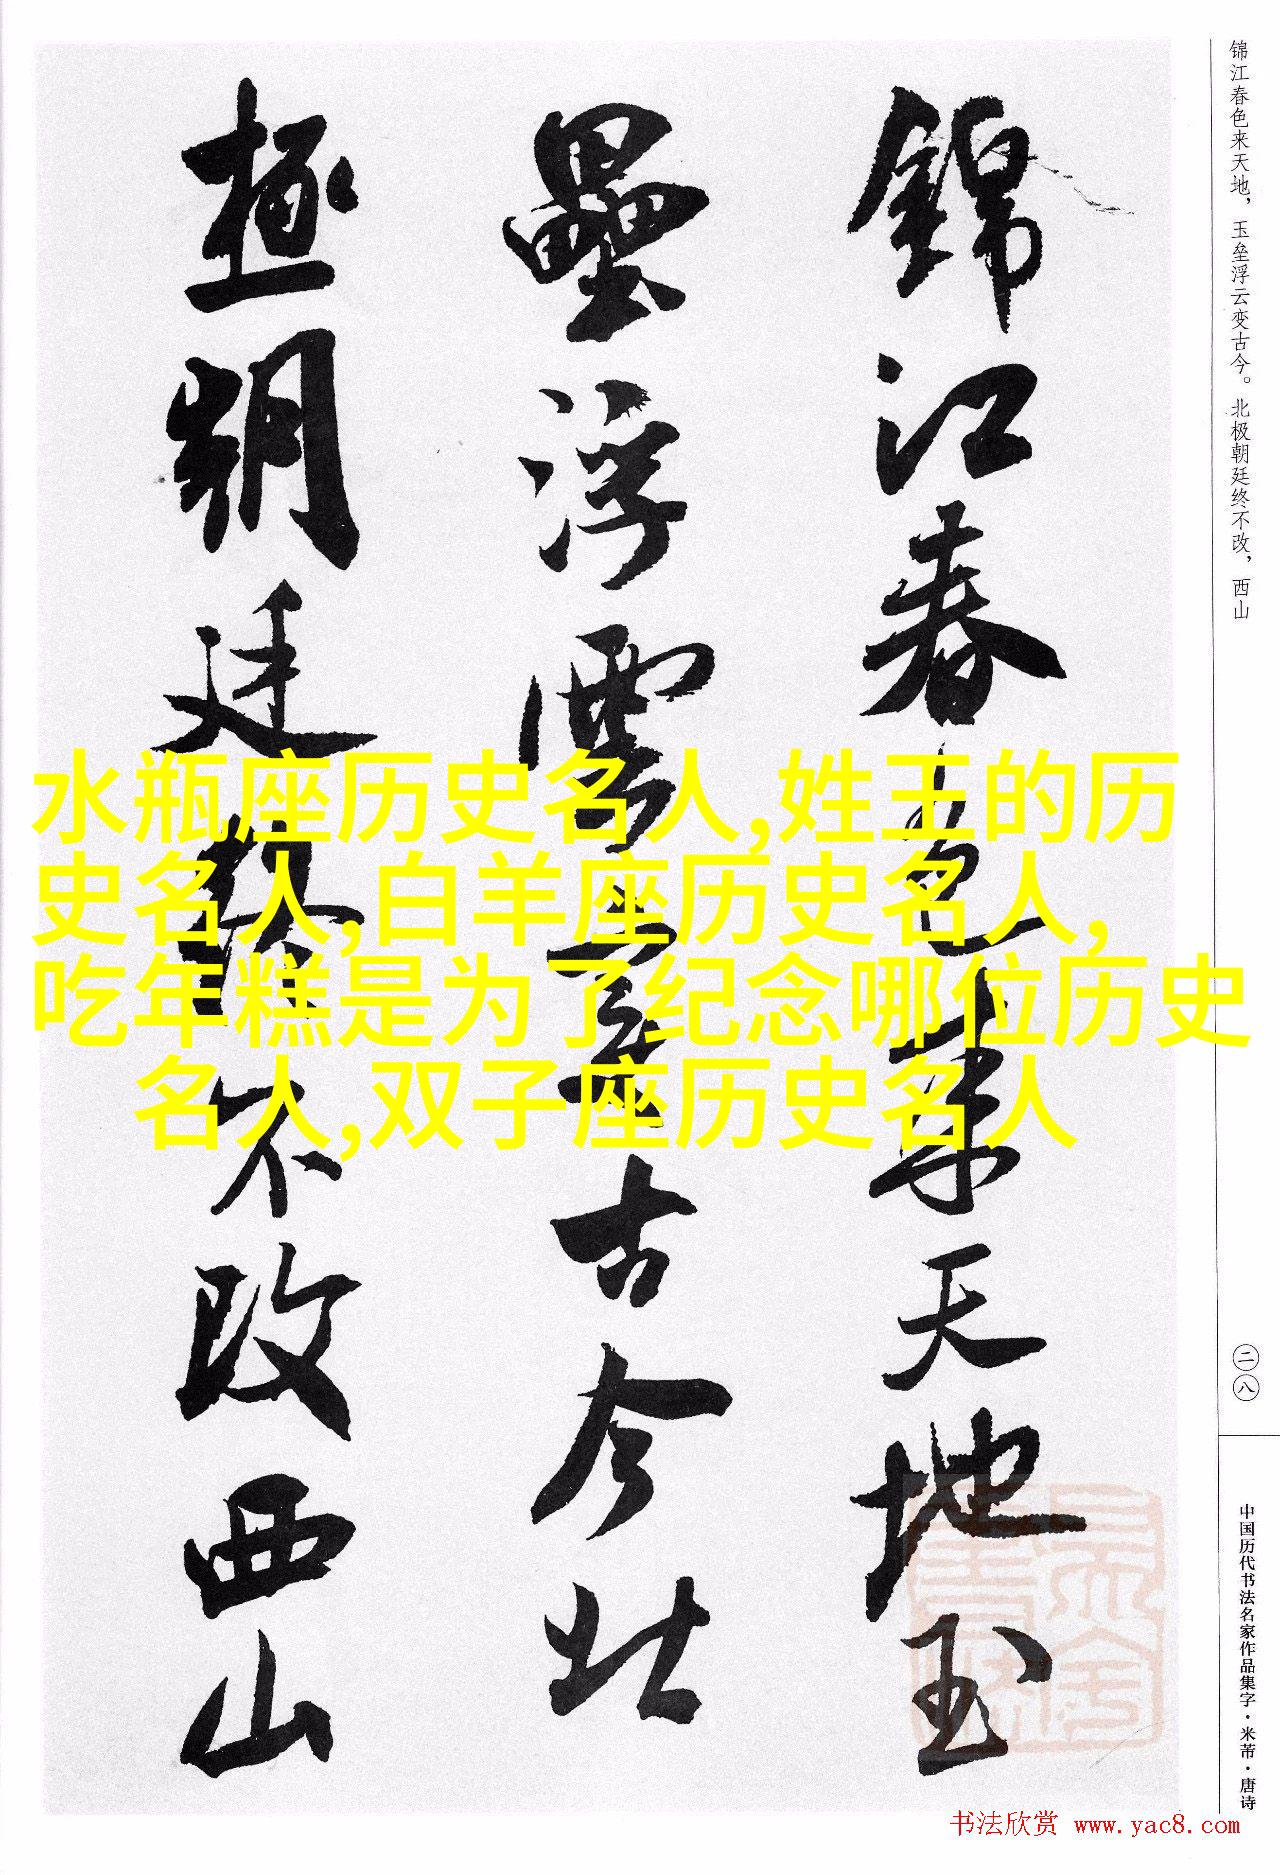 锦江春色来天地，玉垒浮云变古今。北极朝廷终不改，西山
錦江春色来天地玉
壘浮雲变古今北
極朝廷終不改西山
水瓶座历史名人,姓王的历
史名人,白羊座历史名人,
吃年糕是为了纪念哪位历史
名人,双子座历史名人
二八
中国历代书法名家作品集字·米芾·唐诗
书法欣赏 www.yac8.com